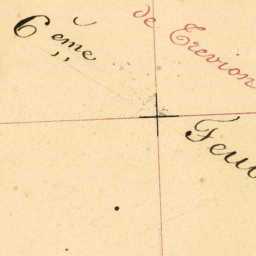 6 eme
de Trevion
Feu